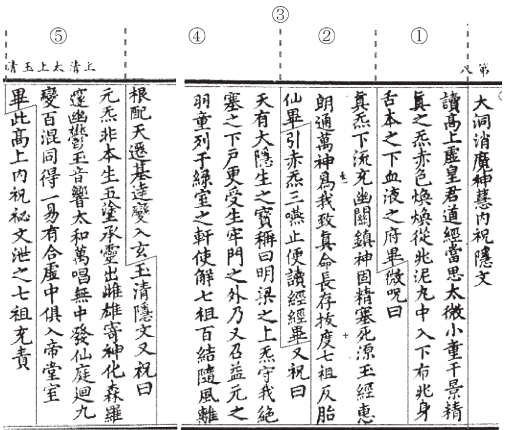 ③
① ② ④ ⑤
第八
上清太上玉清
大洞消魔神慧內祝隱文
讀高上虛皇君道經當思太微小童干景精
真之炁赤色煥煥從兆泥丸中入下布兆身
舌本之下血液之府畢微呪曰
真炁下流充幽關鎮神固精塞死源玉經惠
朗通萬神為我致真命長存拔度七祖反胎
仙畢引赤炁三嚥止便讀經經畢又祝曰
天有大隱生之寶稱曰明梁之上炁守我絕
塞之下戶更受生牢門之外乃又召益元之
羽童列于綠室之軒使解七祖百結隨風離
根配天遷基達變入玄玉清隱文又祝曰
元炁非本生五塗承靈出雌雄寄神化森羅
邃幽鬱玉音響太和萬唱無中發仙庭迴九
變百混同得一易有合虛中俱入帝堂室
畢此高上內祝祕文泄之七祖充責